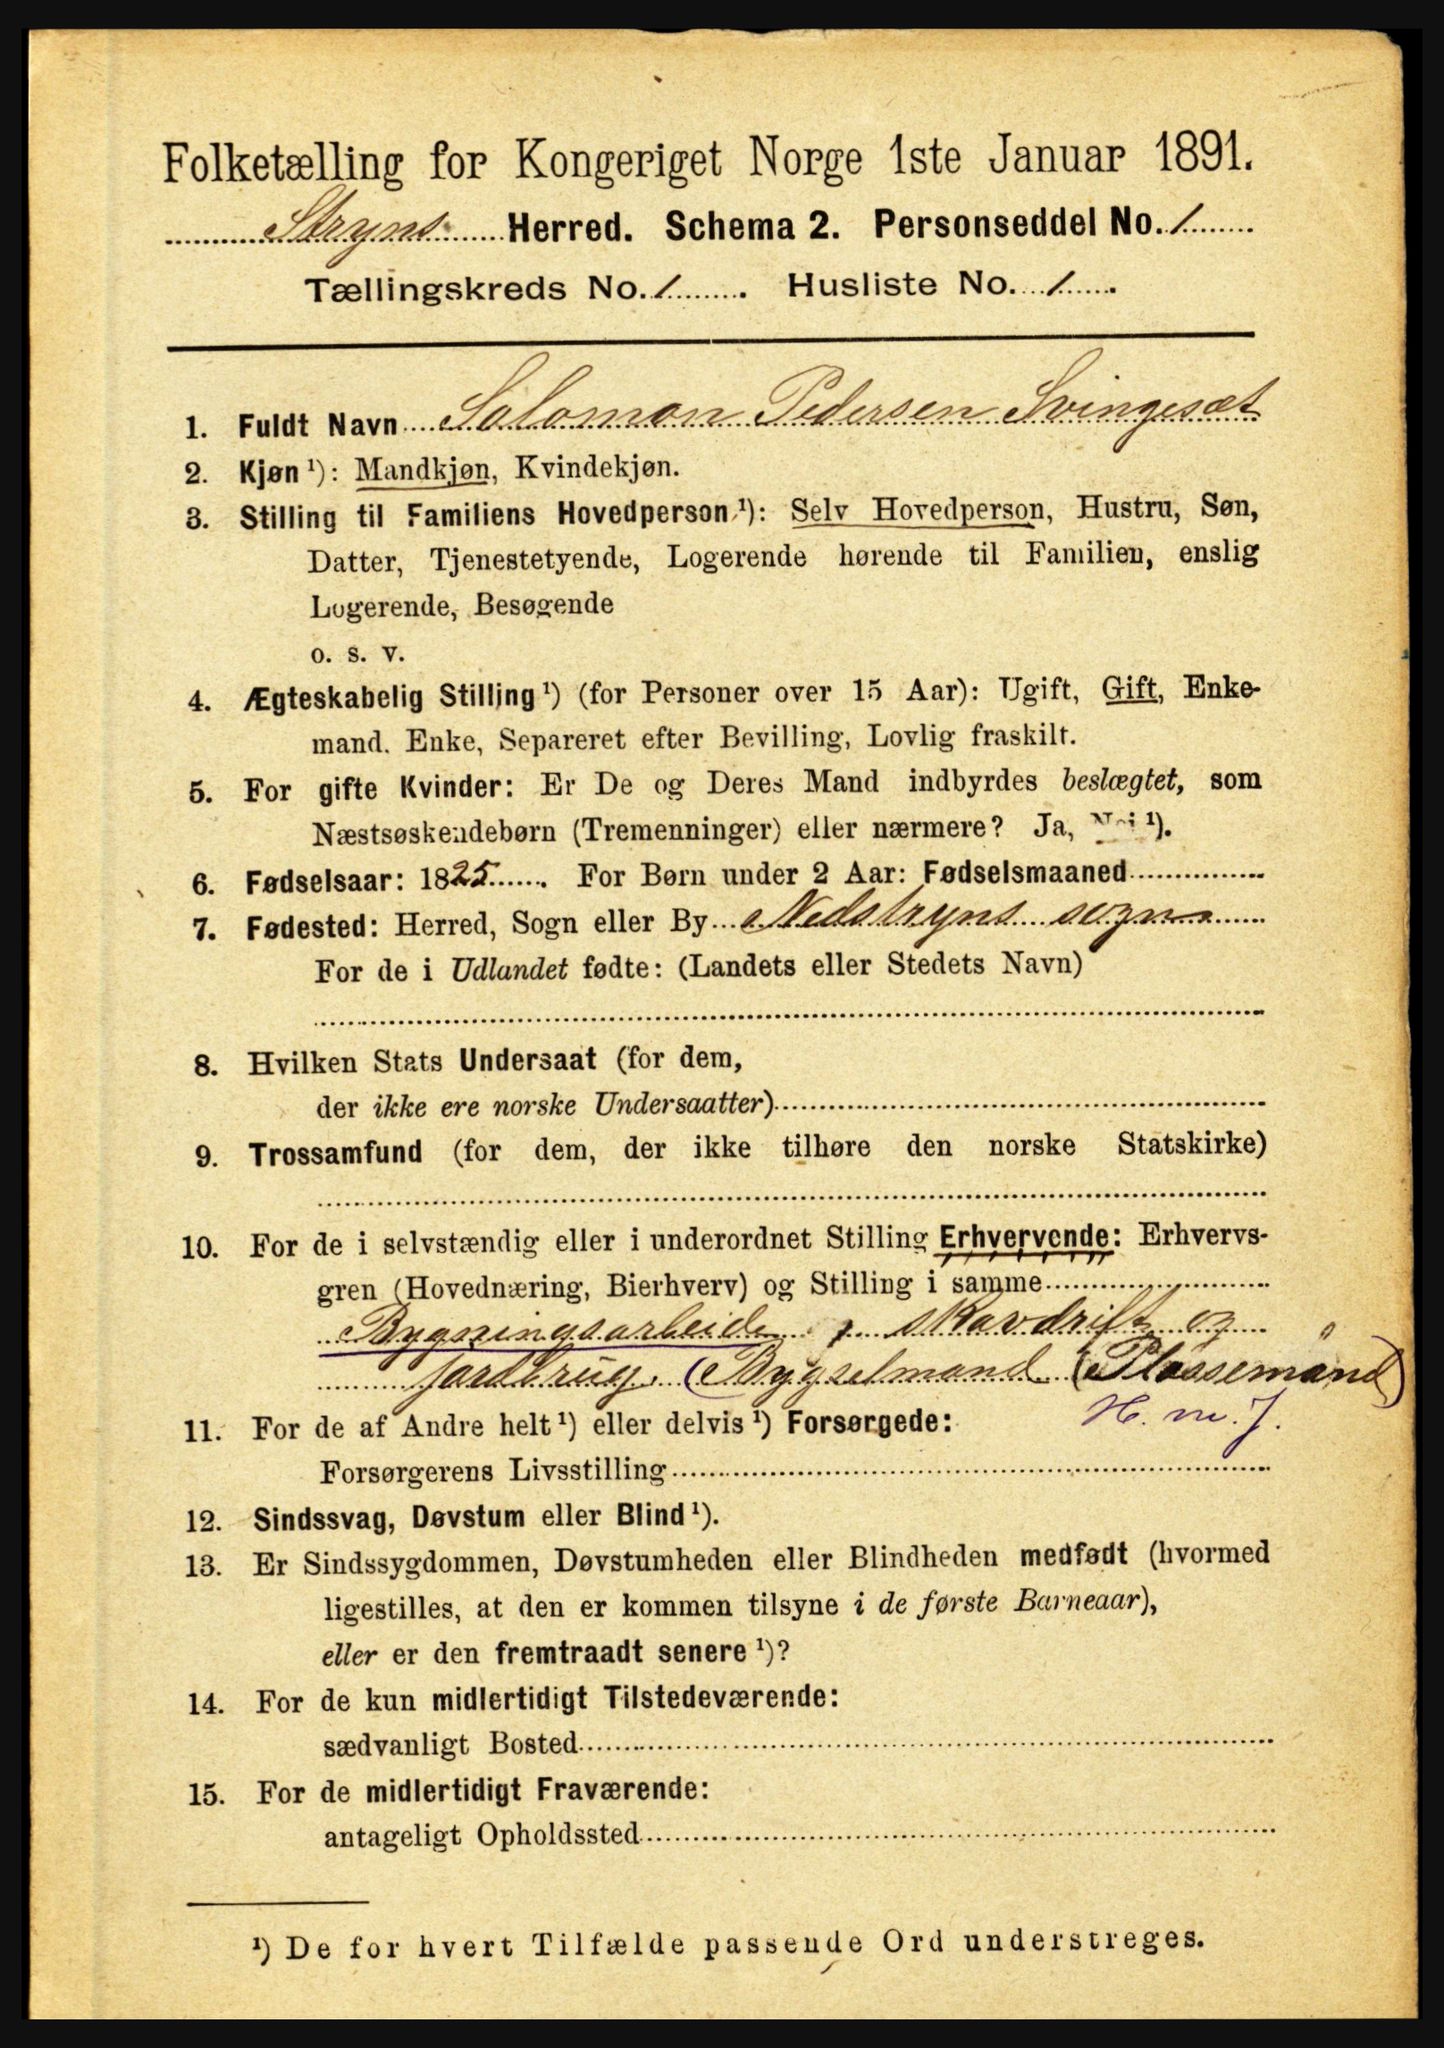 Folketælling for Kongeriget Norge 1ste Januar 1891.
Stryns Herred. Schema 2. Personseddel No. 1
Tællingskreds No. 1. Husliste No. 1.
1. Fuldt Navn Salomon Pedersen Svingesæt
2. Kjøn ¹): Mandkjøn, Kvindekjøn.
3. Stilling til Familiens Hovedperson ¹): Selv Hovedperson, Hustru, Søn,
Datter, Tjenestetyende, Logerende hørende til Familien, enslig
Logerende, Besøgende
o. s. v.
4. Ægteskabelig Stilling ¹) (for Personer over 15 Aar): Ugift, Gift, Enke-
mand. Enke, Separeret efter Bevilling, Lovlig fraskilt.
5. For gifte Kvinder: Er De og Deres Mand indbyrdes beslægtet, som
Næstsøskendebørn (Tremenninger) eller nærmere? Ja, Nei ¹).
6. Fødselsaar: 1825. For Børn under 2 Aar: Fødselsmaaned
7. Fødested: Herred, Sogn eller By Nedstryns sogn
For de i Udlandet fødte: (Landets eller Stedets Navn)
8. Hvilken Stats Undersaat (for dem,
der ikke ere norske Undersaatter)
9. Trossamfund (for dem, der ikke tilhøre den norske Statskirke)
10. For de i selvstændig eller i underordnet Stilling Erhvervende: Erhvervs-
gren (Hovednæring, Bierhverv) og Stilling i samme
Bygningsarbeide, skovdrift og
jordbrug. (Bygselmand (Plassemand)
H. m. J.
11. For de af Andre helt ¹) eller delvis ¹) Forsørgede:
Forsørgerens Livsstilling
12. Sindssvag, Døvstum eller Blind ¹).
13. Er Sindssygdommen, Døvstumheden eller Blindheden medfødt (hvormed
ligestilles, at den er kommen tilsyne i de første Barneaar),
eller er den fremtraadt senere ¹)?
14. For de kun midlertidigt Tilstedeværende:
sædvanligt Bosted
15. For de midlertidigt Fraværende:
antageligt Opholdssted
¹) De for hvert Tilfælde passende Ord understreges.